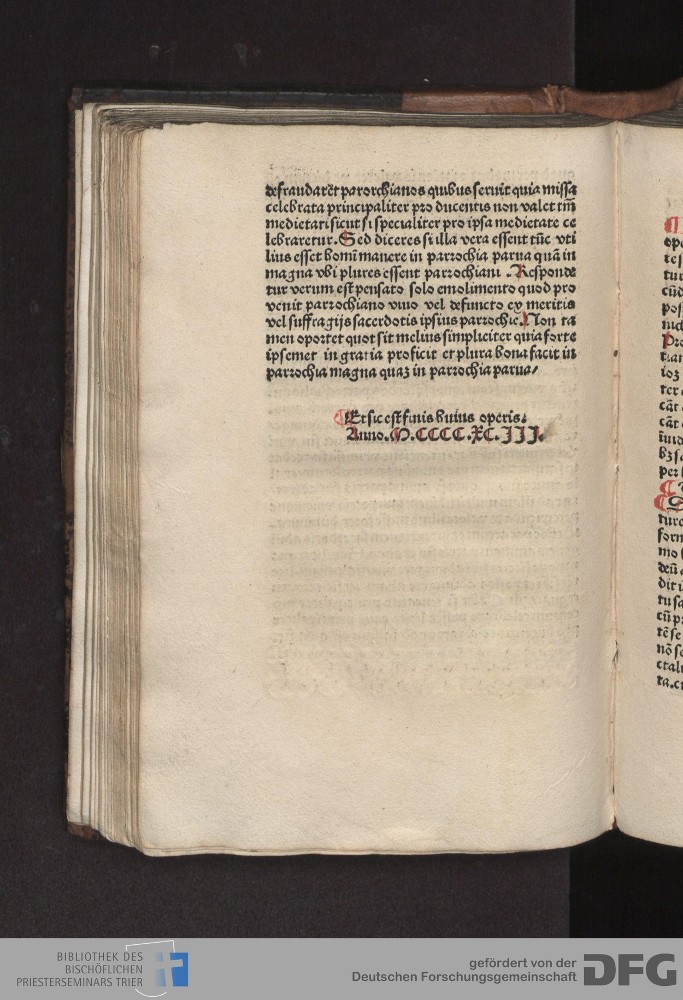 defraudarēt parorchianos quibus seruit quia missa
celebrata principaliter pro ducentis non valet tm̄
medietati sicut si specialiter pro ipsa medietate ce
lebraretur. Sed diceres si illa vera essent tūc vti
lius esset homini manere in parrochia parua quā in
magna vbi plures essent parrochiani. Responde
tur verum est pensato solo emolimento quod pro
venit parrochiano viuo vel defuncto ex meritis
vel suffragijs sacerdotis ipsius parrochie. Non ta
men oportet quot sit melius simpliciter quia forte
ipsemet in gratia proficit et plura bona facit in
parrochia magna quaꝫ in parrochia parua/
Et sic est finis huius operis:
Anno. M. CCCC. XC. III.
ope
tur
cūd
pos
Pre
ioꝫ
cāt
cāt
per
ture
form
mo
deū
dit
tu sa
cū p
tē se
nō se
ctal
ta. c
BIBLIOTHEK DES
BISCHÖFLICHEN
PRIESTERSEMINARS TRIER
gefördert von der
Deutschen Forschungsgemeinschaft
DFG